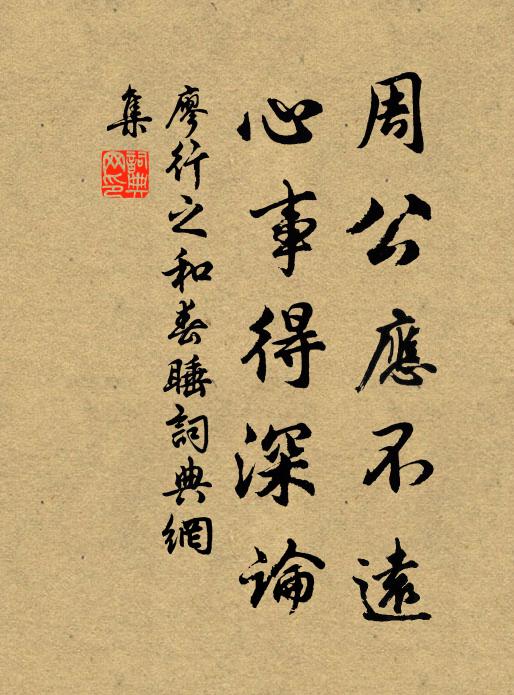 周公應不遠
心事得深論
廖行之和春睡詞典網
集
詞典
网印